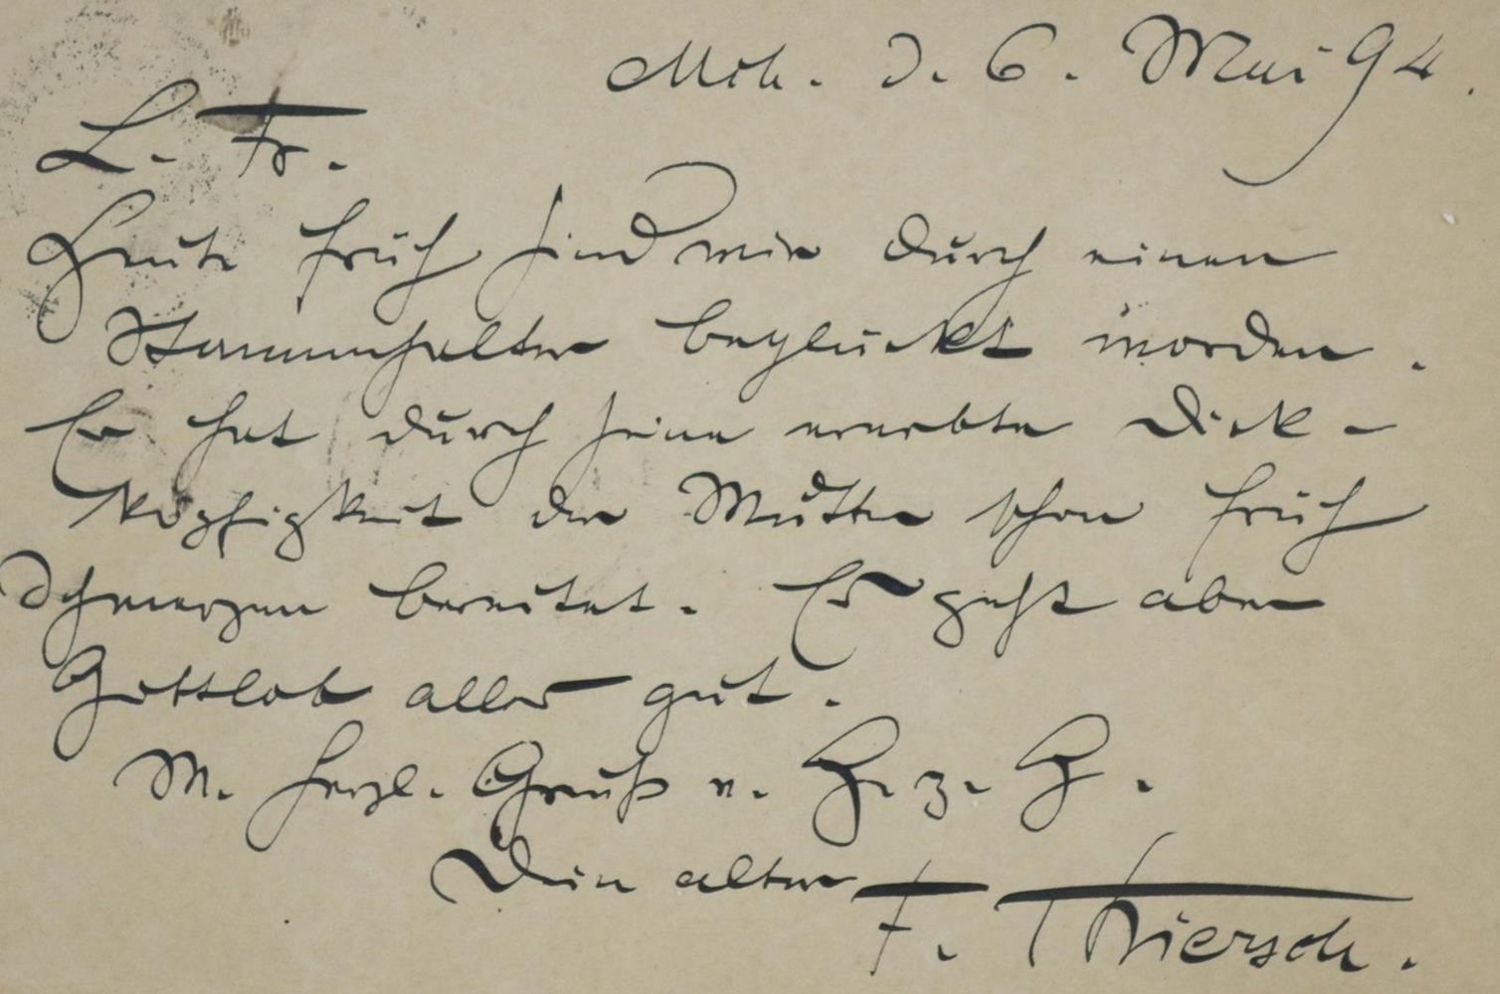 Mch. d. 6. Mai 94.
L. Fr.
Heute früh sind wir durch einen
Stammhalter beglückt worden.
Er hat durch seine ererbte Dick-
köpfigkeit der Mutter schon früh
Schmerzen bereitet. Es geht aber
Gottlob alles gut.
M. herzl. Gruß v. H. z. H.
Dein alter
F. Thiersch.